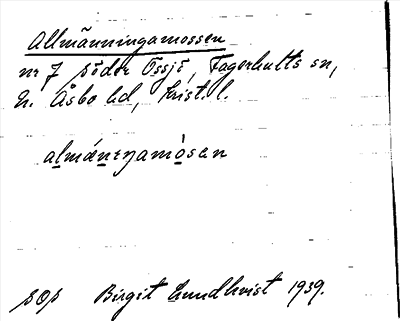 Allmänningamossen
nr 7 söder Össjö, Fagerhults sn,
N. Åsbo hd, Krist. l.
almäneŋamosen
sOs Birgit Lundkvist 1939.